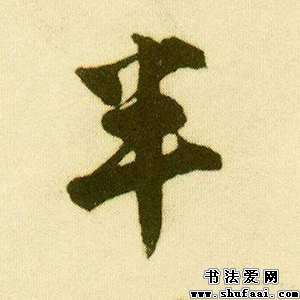 半
书法爱网
www.shufaai.com